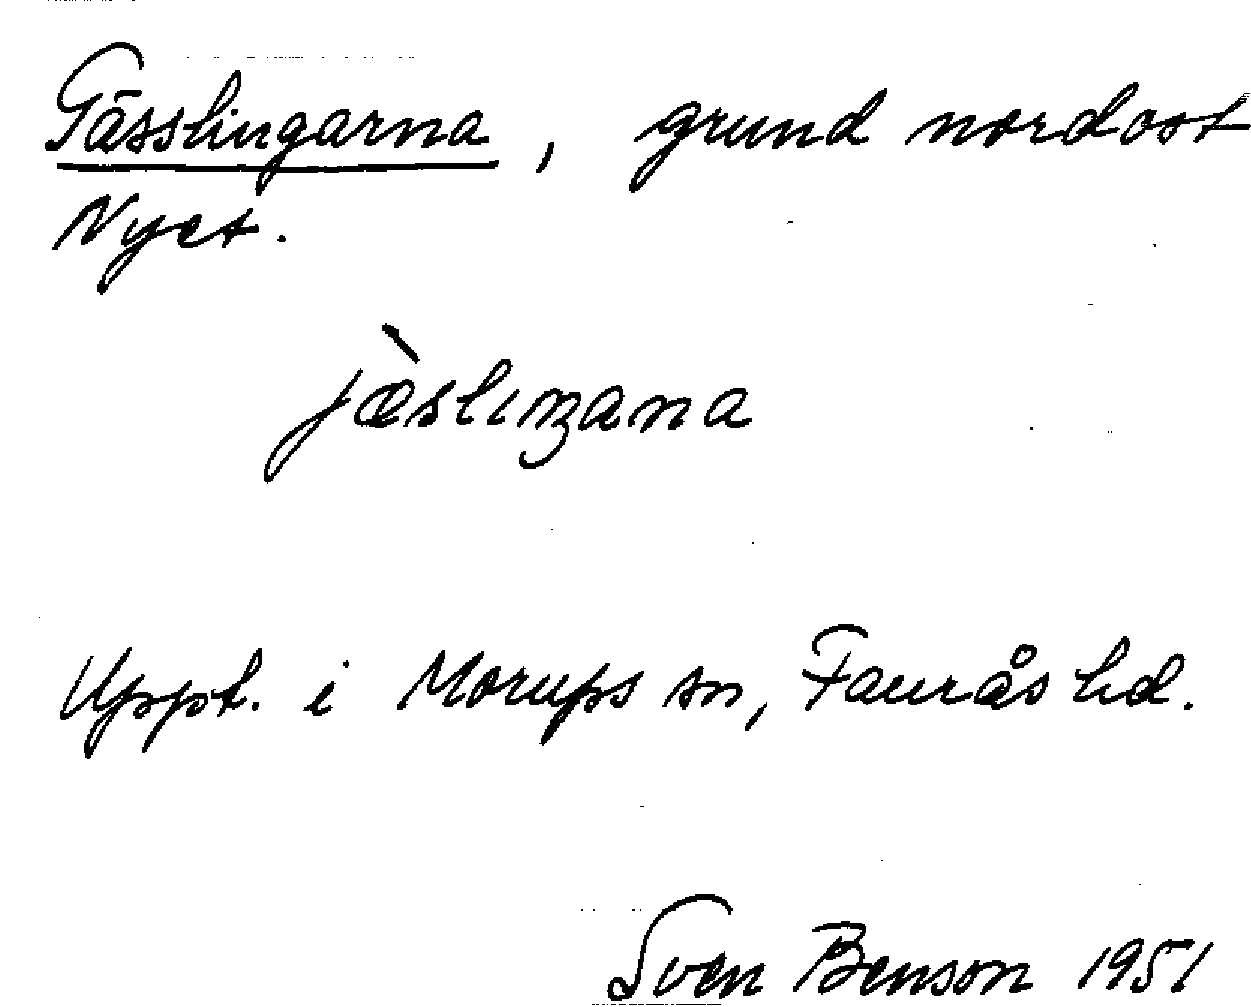 Gässlingarna, grund nordost
Nyet.
jæ̀slıŋana
Uppt. i Morups sn, Faurås hd.
Sven Benson 1951